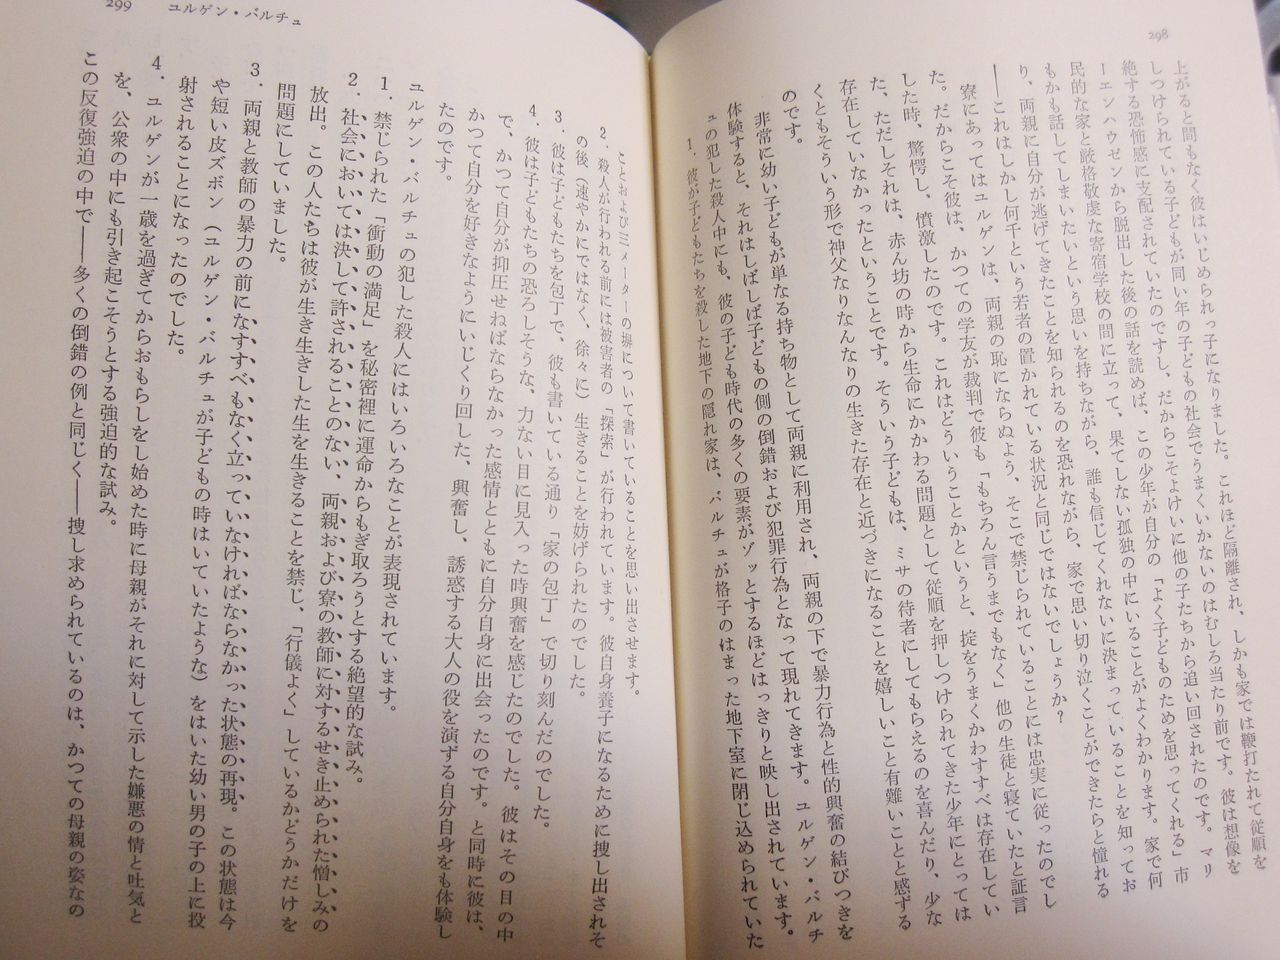 298
上がると間もなく彼はいじめられっ子になりました。これほど隔離され、しかも家では鞭打たれて従順を
しつけられている子どもが同い年の子どもの社会でうまくいかないのはむしろ当たり前です。彼は想像を
絶する恐怖感に支配されていたのですし、だからこそよけいに他の子たちから追い回されたのです。マリ
ーエンハウゼンから脱出した後の話を読めば、この少年が自分の「よく子どものためを思ってくれる」市
民的な家と厳格敬虔な寄宿学校の間に立って、果てしない孤独の中にいることがよくわかります。家で何
もかも話してしまいたいという思いを持ちながら、誰も信じてくれないに決まっていることを知ってお
り、両親に自分が逃げてきたことを知られるのを恐れながら、家で思い切り泣くことができたらと憧れる
――これはしかし何千という若者の置かれている状況と同じではないでしょうか?
寮にあってはユルゲンは、両親の恥にならぬよう、そこで禁じられていることには忠実に従ったのでし
た。だからこそ彼は、かつての学友が裁判で彼も「もちろん言うまでもなく」他の生徒と寝ていたと証言
した時、驚愕し、憤激したのです。これはどういうことかというと、掟をうまくかわすすべは存在してい
た、ただしそれは、赤ん坊の時から生命にかかわる問題として従順を押しつけられてきた少年にとっては
存在していなかったということです。そういう子どもは、ミサの侍者にしてもらえるのを喜んだり、少な
くともそういう形で神父なりなんなりの生きた存在と近づきになることを嬉しいこと有難いことと感ずる
のです。
非常に幼い子どもが単なる持ち物として両親に利用され、両親の下で暴力行為と性的興奮の結びつきを
体験すると、それはしばしば子どもの側の倒錯および犯罪行為となって現れてきます。ユルゲン・バルチ
ュの犯した殺人中にも、彼の子ども時代の多くの要素がゾッとするほどはっきりと映し出されています。
1. 彼が子どもたちを殺した地下の隠れ家は、バルチュが格子のはまった地下室に閉じ込められていた
299 ユルゲン・バルチュ
ことおよび三メーターの塀について書いていることを思い出させます。
2. 殺人が行われる前には被害者の「探索」が行われています。彼自身養子になるために捜し出されそ
の後(速やかにではなく、徐々に)生きることを妨げられたのでした。
3. 彼は子どもたちを包丁で、彼も書いている通り「家の包丁」で切り刻んだのでした。
4. 彼は子どもたちの恐ろしそうな、力ない目に見入った時興奮を感じたのでした。彼はその目の中
で、かつて自分が抑圧せねばならなかった感情とともに自分自身に出会ったのです。と同時に彼は、
かつて自分を好きなようにいじくり回した、興奮し、誘惑する大人の役を演ずる自分自身をも体験し
たのです。
ユルゲン・バルチュの犯した殺人にはいろいろなことが表現されています。
1. 禁じられた「衝動の満足」を秘密裡に運命からもぎ取ろうとする絶望的な試み。
2. 社会においては決して許されることのない、両親および寮の教師に対するせき止められた憎しみの
放出。この人たちは彼が生き生きした生を生きることを禁じ、「行儀よく」しているかどうかだけを
問題にしていました。
3. 両親と教師の暴力の前になすすべもなく立っていなければならなかった状態の再現。この状態は今
や短い皮ズボン(ユルゲン・バルチュが子どもの時はいていたような)をはいた幼い男の子の上に投
射されることになったのでした。
4. ユルゲンが一歳を過ぎてからおもらしをし始めた時に母親がそれに対して示した嫌悪の情と吐気と
を、公衆の中にも引き起こそうとする強迫的な試み。
この反復強迫の中で――多くの倒錯の例と同じく――捜し求められているのは、かつての母親の姿なの